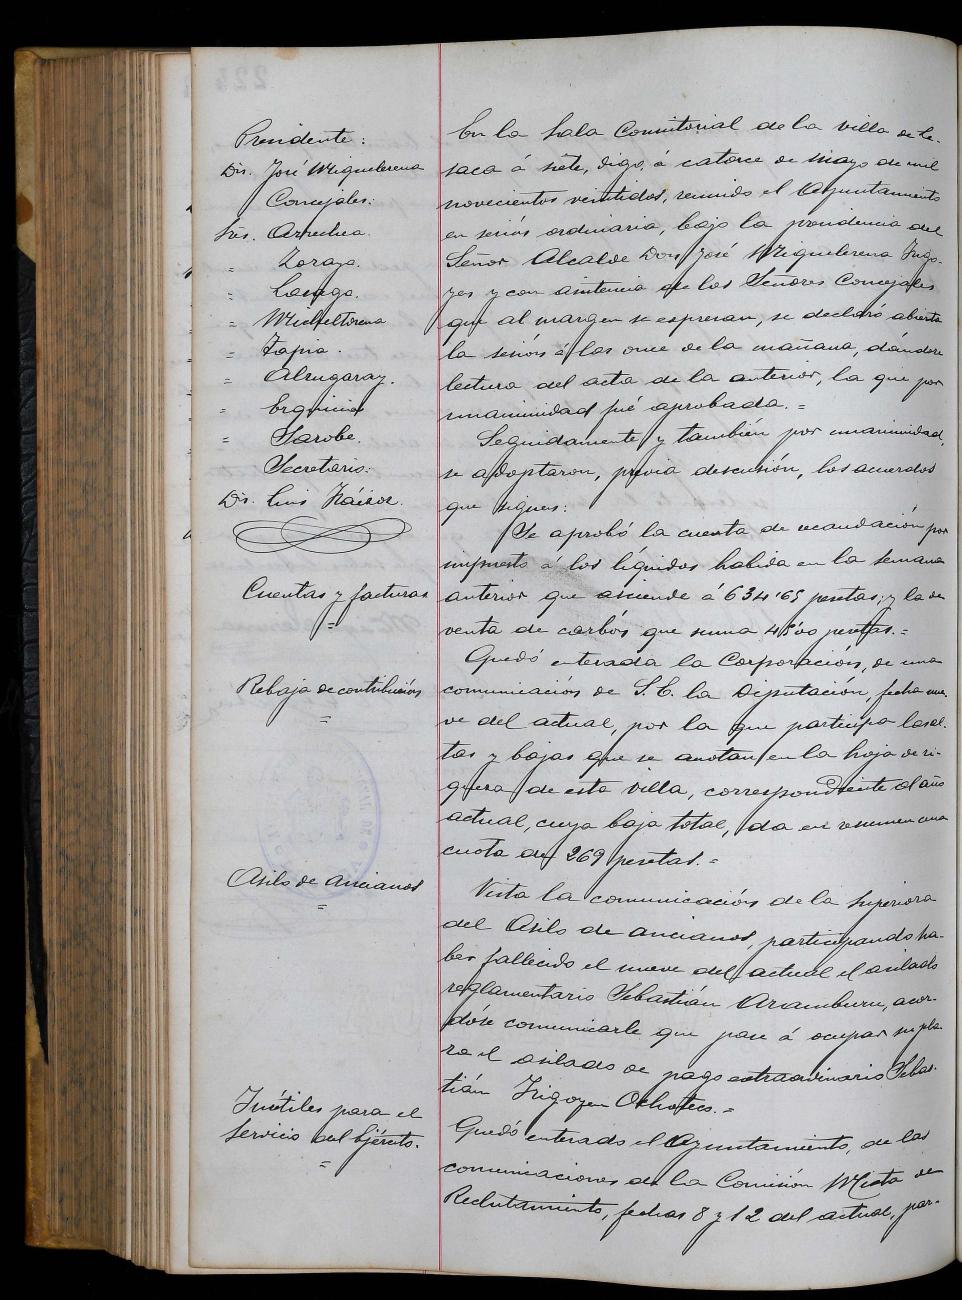 Presidente:
Dn. José Miguelerena
Concejales:
Sres. Arrechea.
" Zoraya.
" Lasaga.
" Micheltorena
" Tapia.
" Alzugaray.
" Erquicia
" Sarobe.
Secretario:
Dn. Luis
Cuentas y facturas
=
Rebaja de contribución
=
Asilo de Ancianos
=
Inútiles para el
servicio del Ejército.
=
En la Sala Consitorial de la villa de Le-
saca á siete, digo, á catorce de Mayo de mil
novecientos veintidos, reunido el Ayuntamiento
en sesión ordinaria, bajo la presidencia del
Señor Alcalde Don José Miguelerena Yrigo-
yen y con asistencia de los Señores Concejales
que al margen se expresan, se declaró abierta
la sesión á las once de la mañana, dándose
lectura del acta de la anterior, la que por
unanimidad fué aprobada. =
Seguidamente y también por unanimidad,
se adoptaron, previa discusión, los acuerdos
que siguen:
Se aprobó la cuenta de recaudación por
impuesto á los líquidos habida en la semana
anterior que asciende á 634'65 pesetas; y la de
venta de carbón que suma 45'00 pesetas. =
Quedó enterada la Corporación, de una
comunicación de S.E. la Diputación, fecha nue-
ve del actual, por la que participa las al-
tas y bajas que se anotan en la hoja de ri-
queza de esta villa, correspondiente al año
actual, cuya baja total, da en resumen una
cuota de 269 pesetas. =
Vista la comunicación de la Superiora
del Asilo de Ancianos, participando ha-
ber fallecido el nueve del actual el asilado
reglamentario Sebastián Aramburu, acor-
dóse comunicarle que pase á ocupar su pla-
za el asilado de pago extraordinario Sebas-
tián Yrigoyen Ochoteco. =
Quedó enterado el Ayuntamiento, de las
comunicaciones de la Comisión Mixta de
Reclutamiento, fechas 8 y 12 del actual, par-